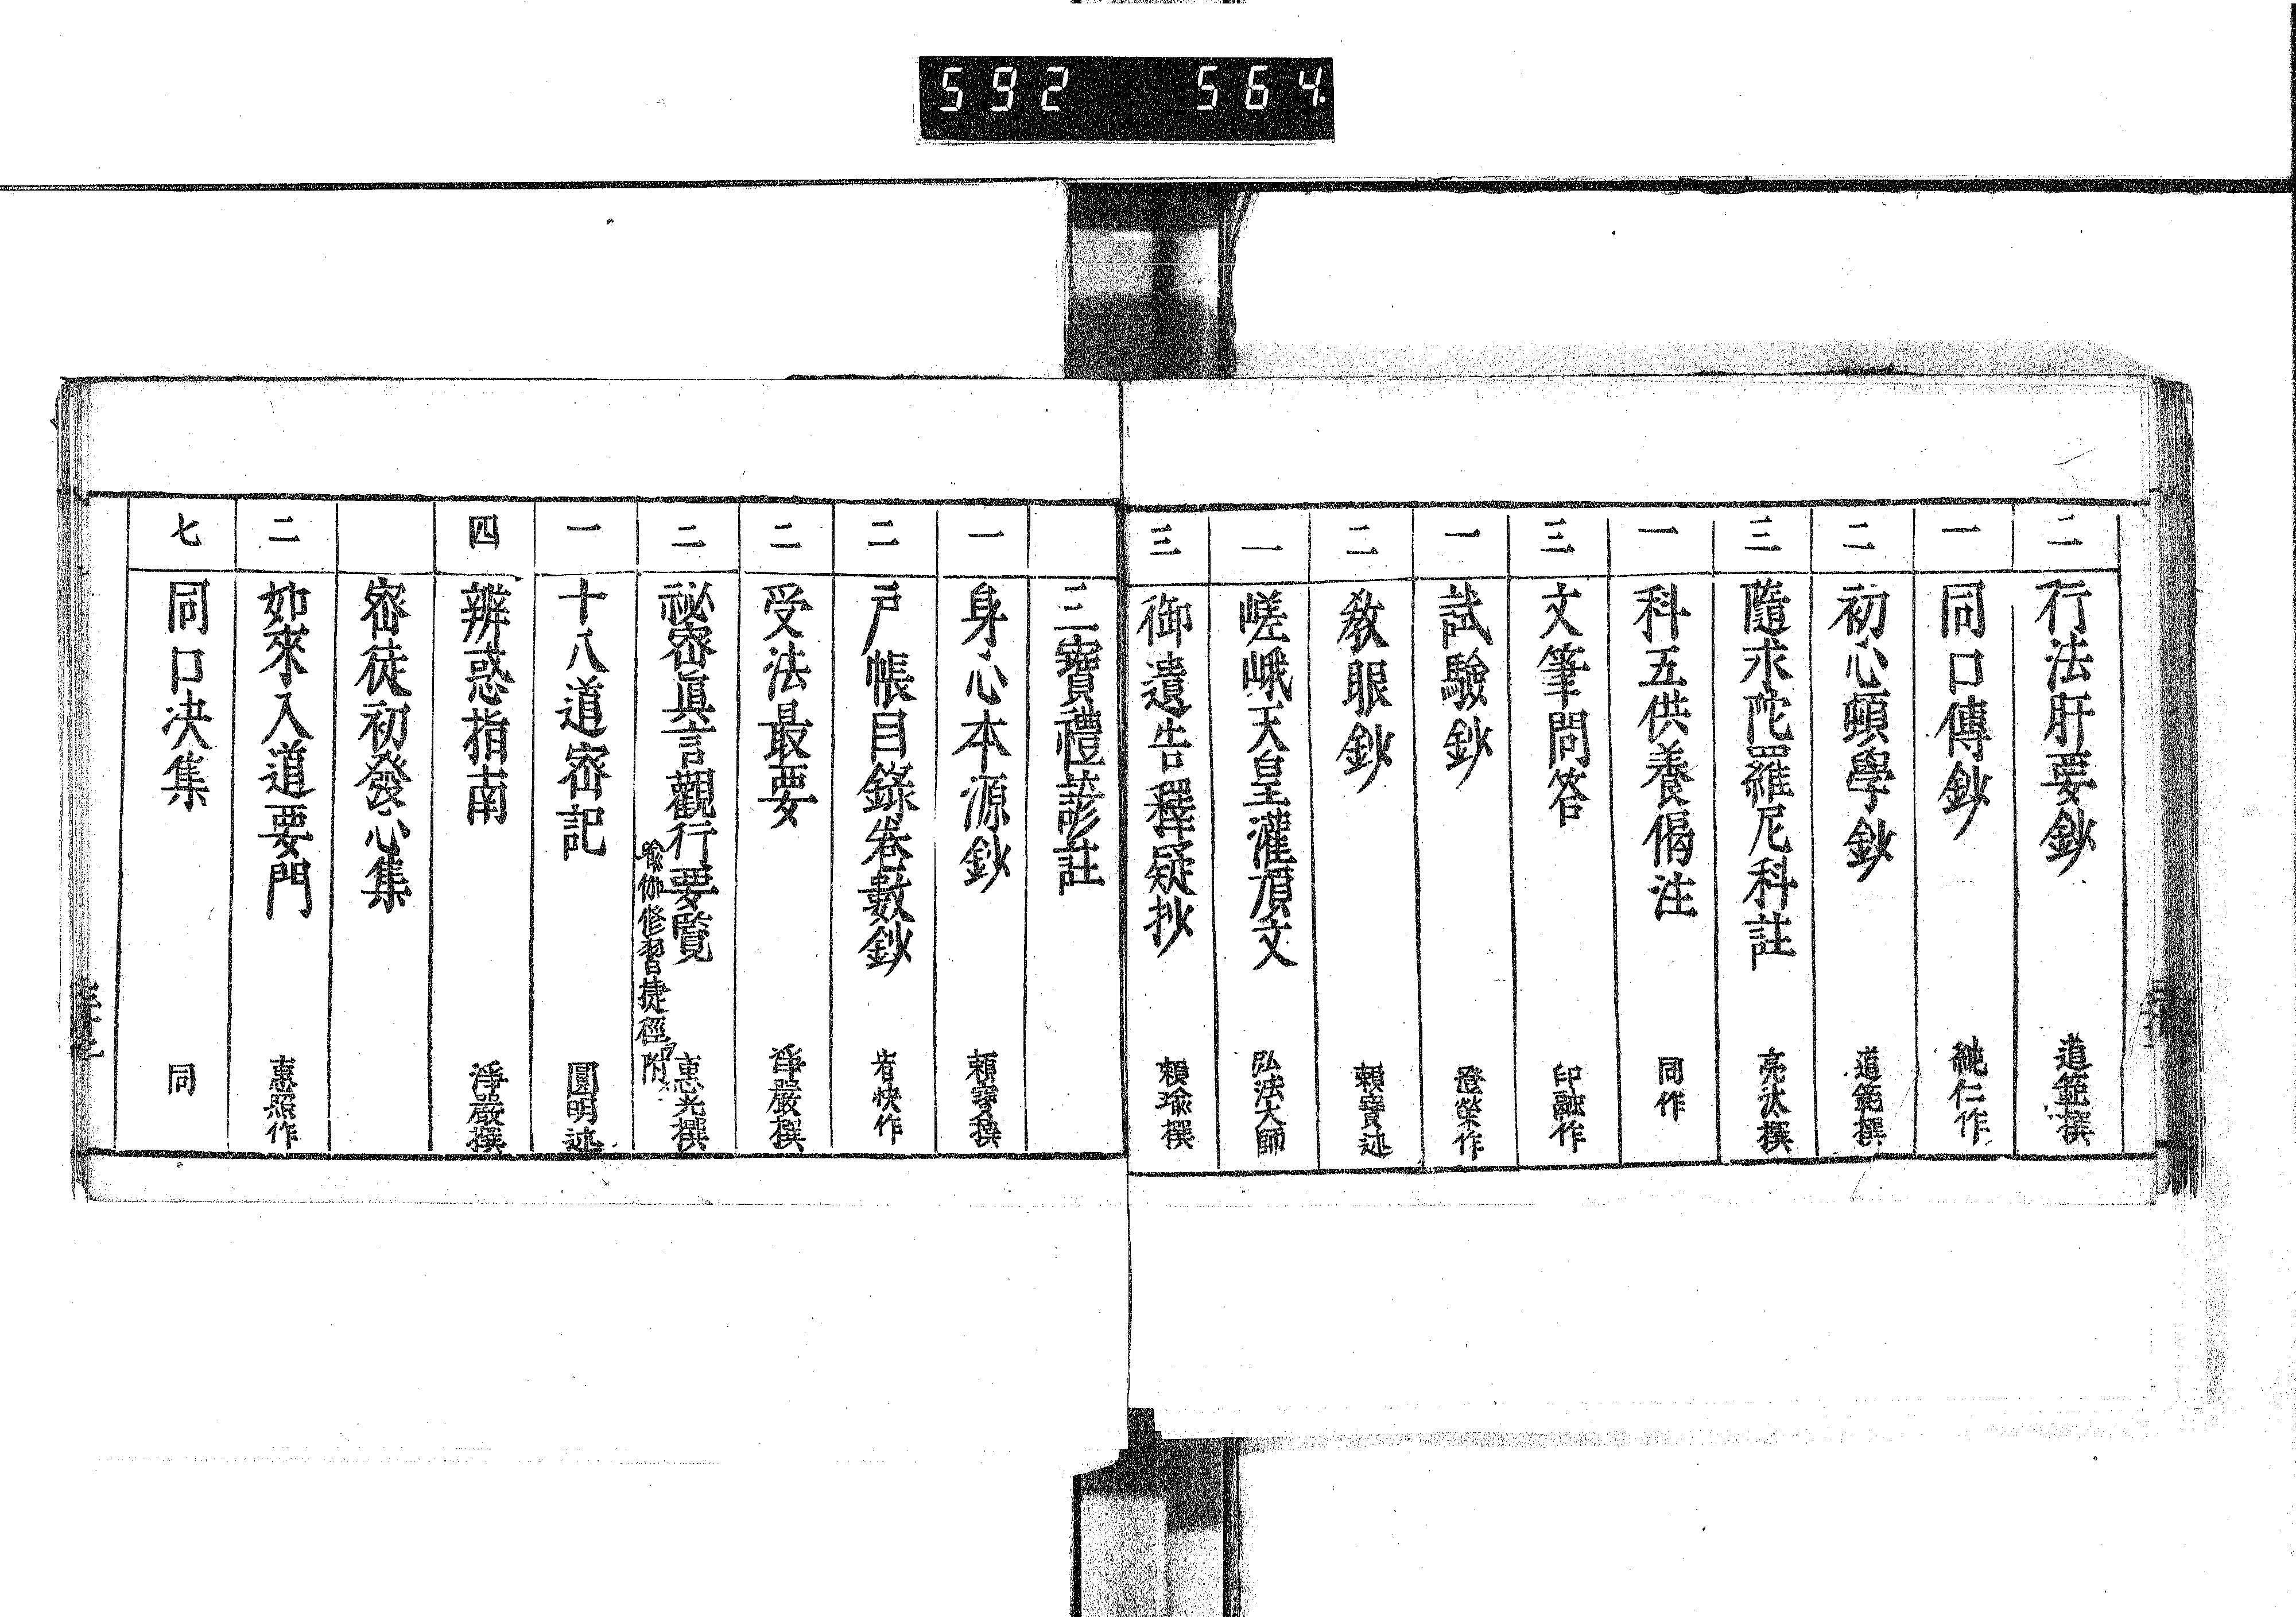 592 564
二 行法肝要鈔 道範撰
一 同口傳鈔 純仁作
二 初心頓學鈔 道範撰
三 隨求陀羅尼科註 亮汰撰
一 科五供養偈注 同作
三 文筆問答 印融作
一 試驗鈔 澄榮作
二 教眼鈔 賴寶述
一 嵯峨天皇灌頂文 弘法大師
三 御遺告釋疑抄 賴瑜撰
三寶禮諺註
一 身心本源鈔 賴寶撰
二 戸帳目錄卷數鈔 宥快作
二 受法最要 淨嚴撰
二 祕密眞言觀行要覽 惠光撰
瑜伽修習捷徑附
一 十八道密記 圓明述
四 辨惑指南 淨嚴撰
密徒初發心集
二 如來入道要門 惠照作
七 同口決集 同